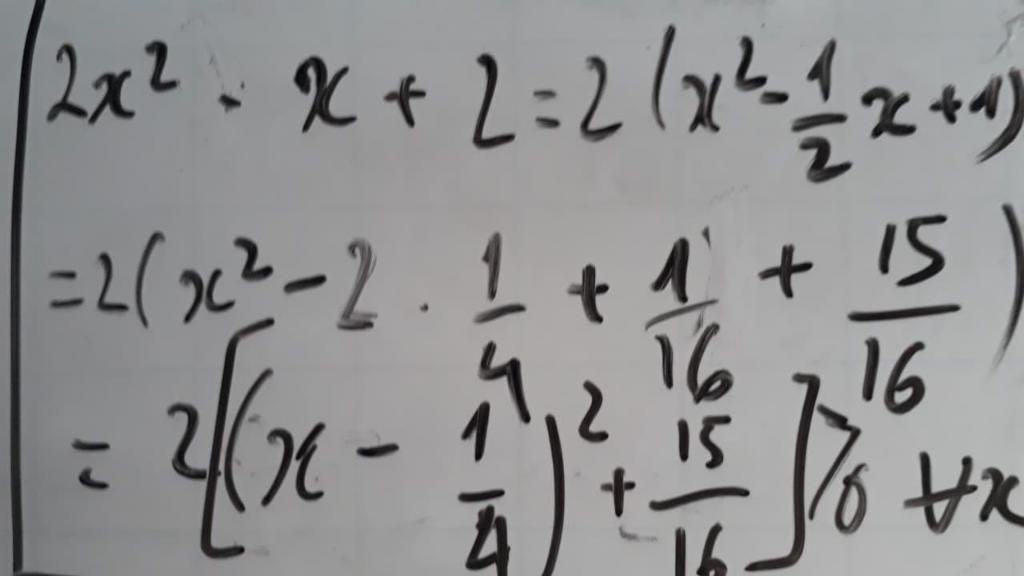 2x² - x + 2 = 2(x² - 1/2 x + 1)
= 2(x² - 2 . 1/4 + 1/16 + 15/16)
= 2[(x - 1/4)² + 15/16] > 0 ∀x